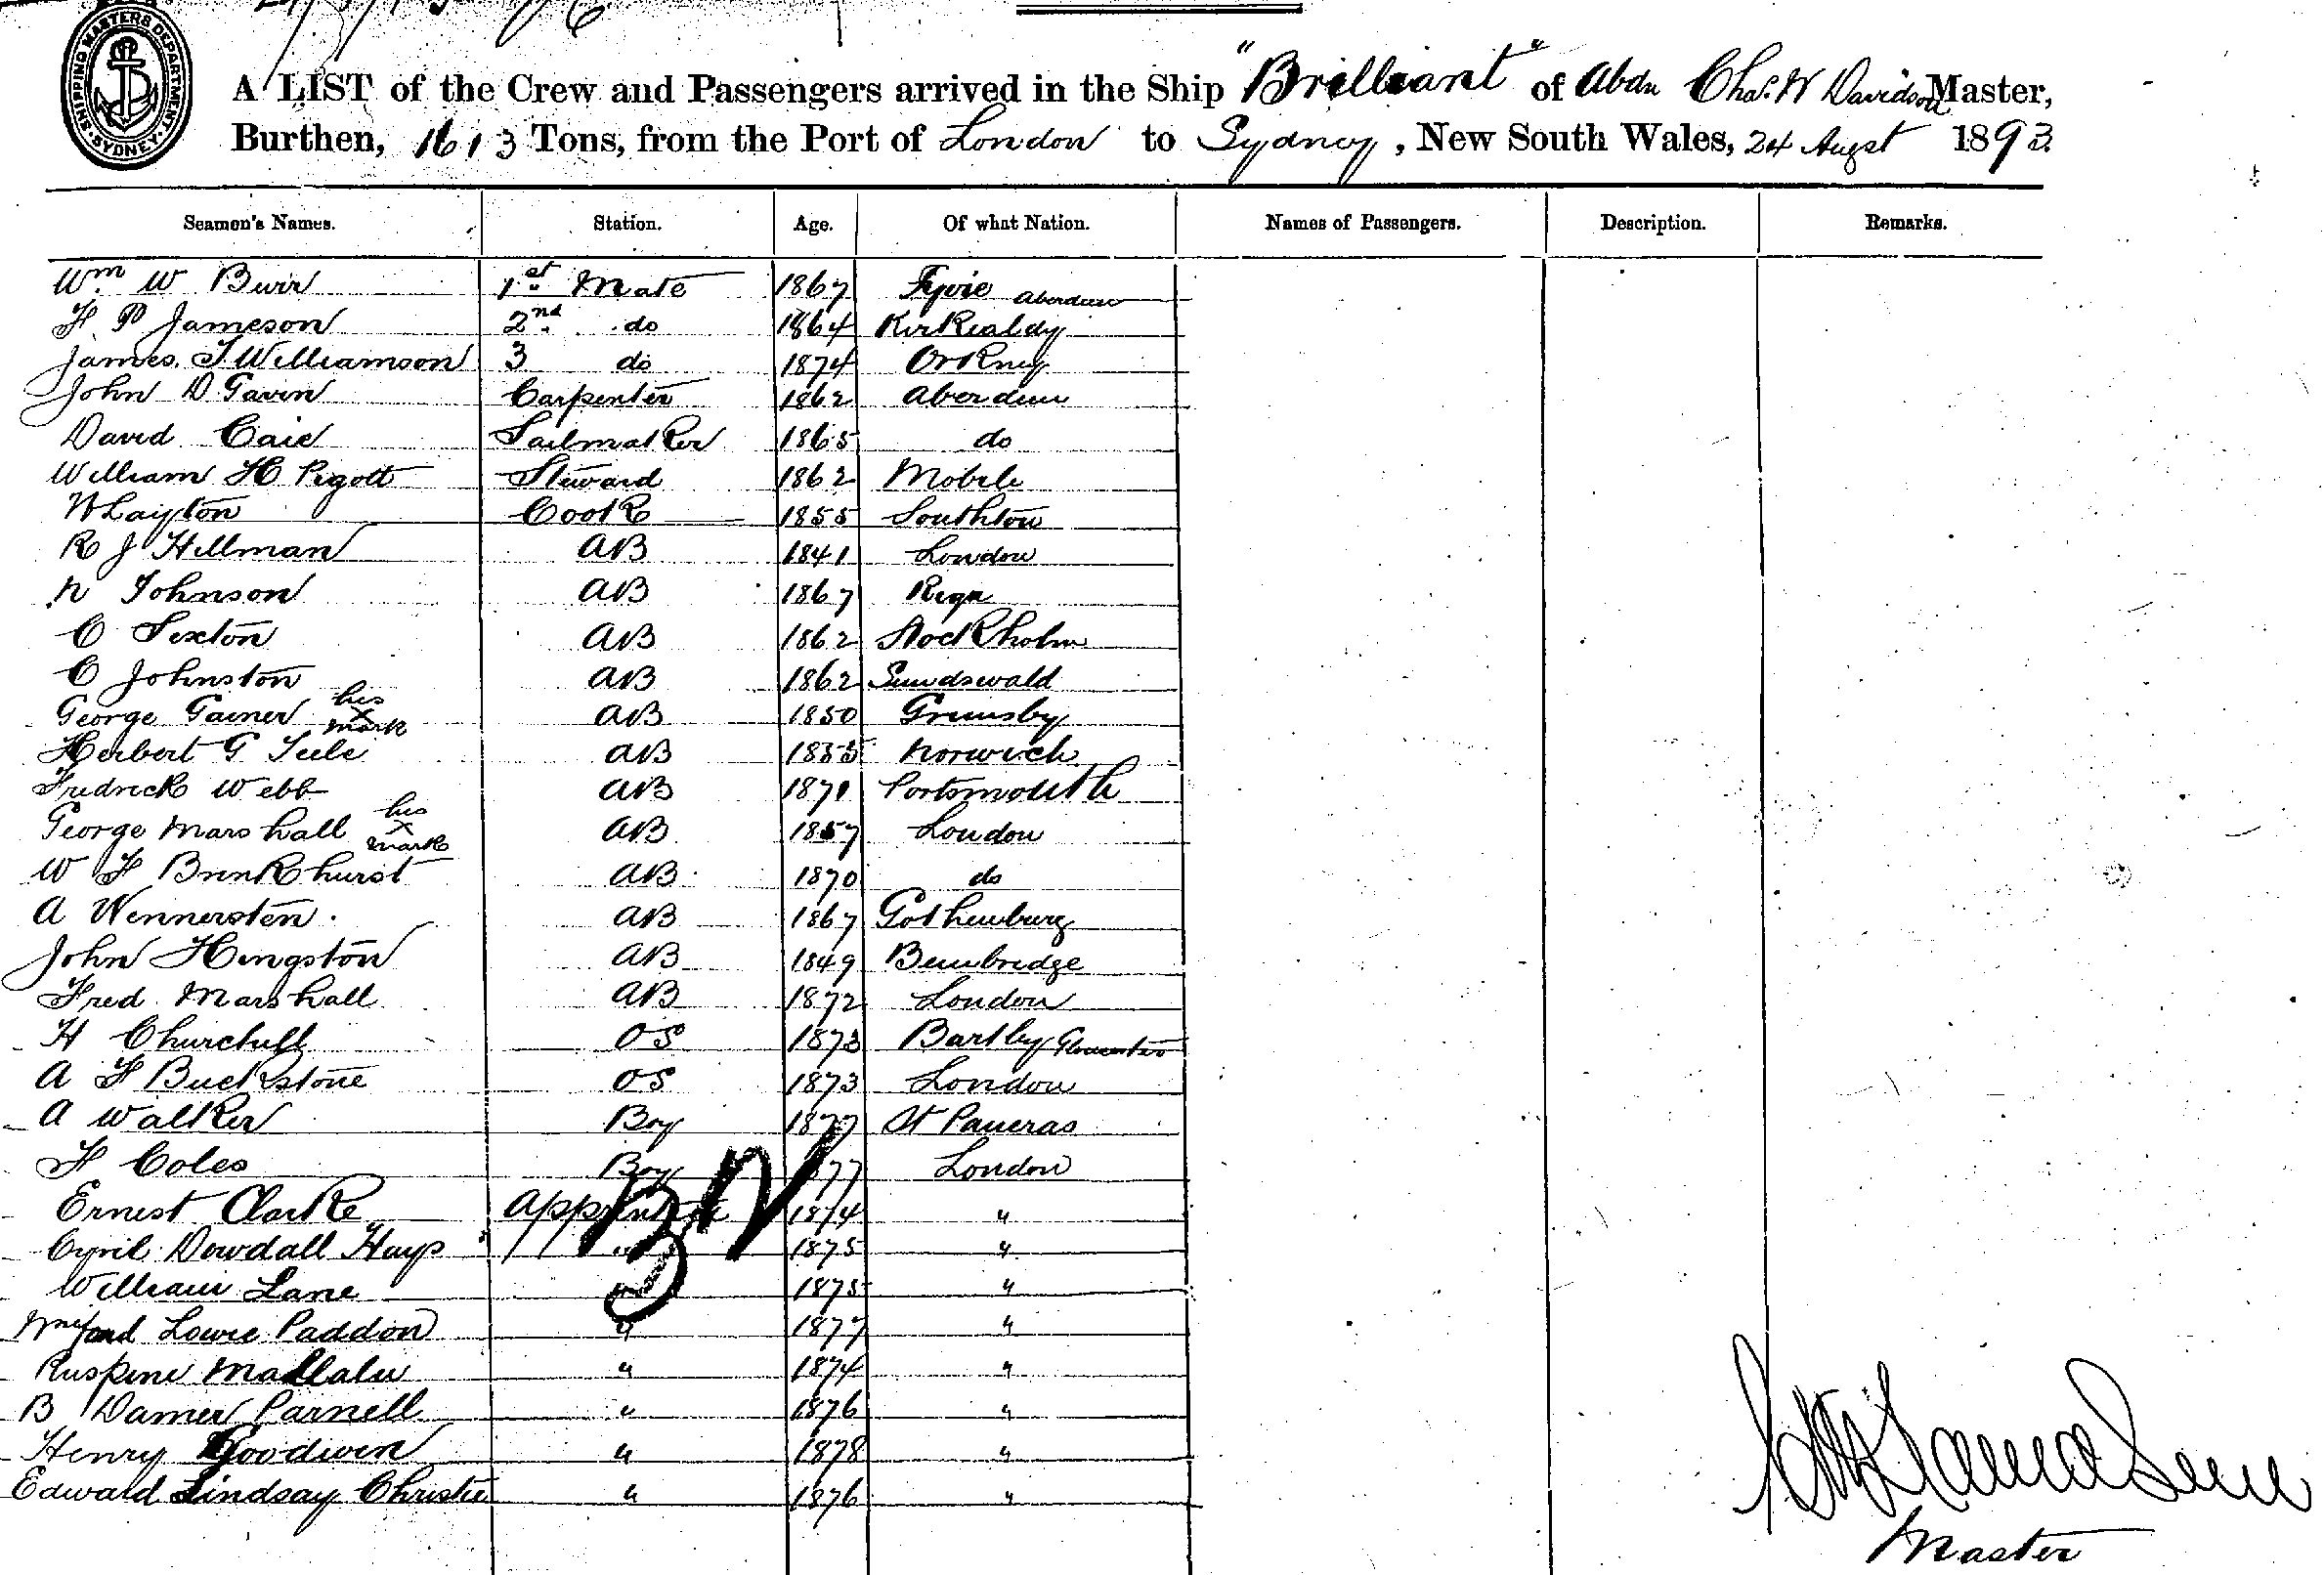 SHIPPING MASTERS DEPARTMENT. SYDNEY
A LIST of the Crew and Passengers arrived in the Ship "Brilliant" of Abdn Chas. W Davidson Master,
Burthen, 1613 Tons, from the Port of London to Sydney, New South Wales, 24 Augst 1893.
Seamen's Names. Station. Age. Of what Nation. Names of Passengers. Description. Remarks.
Wm W Burr 1st Mate 1867 Fyvie Aberdeen
H P Jameson 2nd do 1864 Kirkcaldy
James. T. Williamson 3 do 1874 Orkney
John D Gavin Carpenter 1862 Aberdeen
David Caie Sailmaker 1865 do
William H Pigott Steward 1862 Mobile
W Layton Cook 1855 Southton
R J Hillman AB 1841 London
N Johnson AB 1867 Riga
O Sexton AB 1862 Stockholm
O Johnston AB 1862 Sundswald
George Gainer his x mark AB 1850 Grimsby
Herbert G Teele AB 1855 Norwich
Fredrick Webb AB 1871 Portsmouth
George Marshall his x mark AB 1857 London
W H Brinkhurst AB 1870 do
A Wennersten. AB 1867 Gothenburg
John Hingston AB 1849 Bembridge
Fred. Marshall AB 1872 London
H Churchill OS 1873 Bartley Gloucester
A H Buckstone OS 1873 London
A Walker Boy 1877 St Pancras
H Coles Boy 1877 London
Ernest Clarke Apprentice 1874 "
Cyril Dowdall Hays " 1875 "
William Lane " 1875 "
Lowre Paddon " 1877 "
Ruspini Mallalu " 1874 "
B Damer Parnell " 1876 "
Henry Goodwin " 1878 "
Edward Lindsay Christie " 1876 "
Master